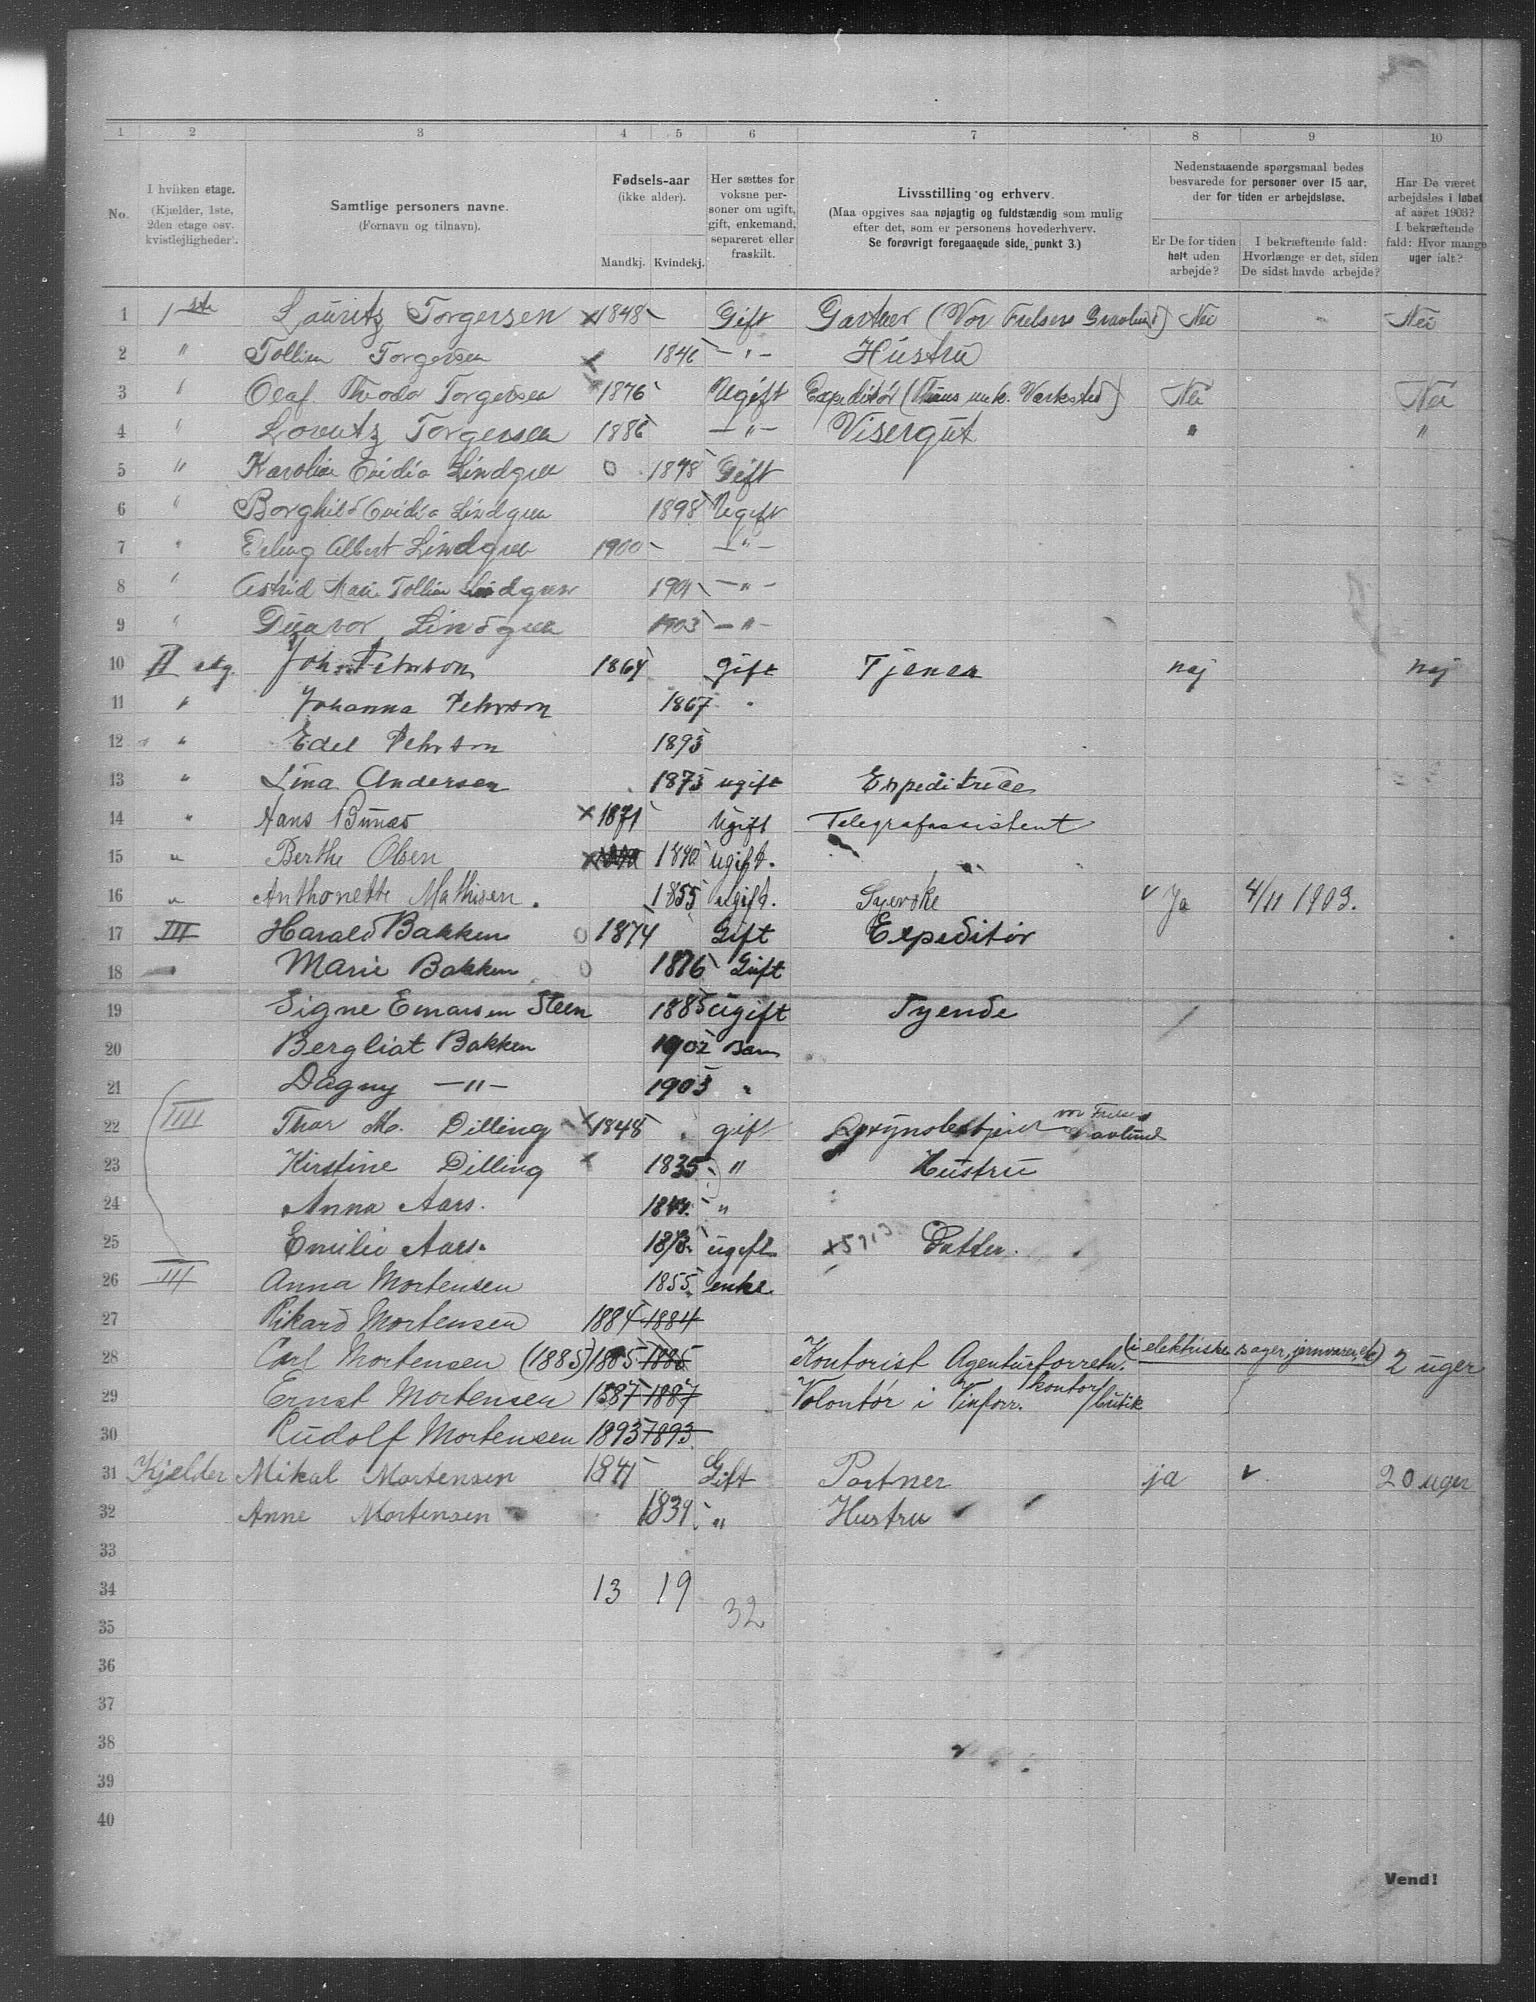 1 2 3 4 5 6 7 8 9 10
No.
I hvilken etage.
(Kjælder, 1ste,
2den etage osv.
kvistlejligheder).
Samtlige personers navne.
(Fornavn og tilnavn).
Fødsels-aar
(ikke alder).
Mandkj. Kvindekj.
Her sættes for
voksne per-
soner om ugift,
gift, enkemand,
separeret eller
fraskilt.
Livsstilling og erhverv.
(Maa opgives saa nøjagtig og fuldstændig som mulig
efter det, som er personens hovederhverv.
Se forøvrigt foregaaende side, punkt 3.)
Nedenstaaende spørgsmaal bedes
besvarede for personer over 15 aar,
der for tiden er arbejdsløse.
Er De for tiden
helt uden
arbejde?
I bekræftende fald:
Hvorlænge er det, siden
De sidst havde arbejde?
Har De været
arbejdsløs i løbet
af aaret 1903?
I bekræftende
fald: Hvor mange
uger ialt?
1 1ste Lauritz Torgersen x 1848 Gift Gartner (Vor Frelsers Gravlund) Nei " Nei
2 " Tolline Torgersen x 1846 — " — Hustru
3 " Olaf Theodor Torgersen 1876 Ugift Expeditør ( mek. Værksted) Nei Nei
4 " Lorentz Torgersen 1886 — " — Visergut " "
5 " Karoline Ovidia Lindgren 0 1878 Gift
6 " Borghild Ovidia Lindgren 1898 Ugift
7 " Erling Albert Lindgren 1900 — " —
8 " Astrid Marie Tolline Lindgren 1901 — " —
9 " Gunvor Lindgren 1903 — " —
10 II etg. John Pehrson 1864 gift Tjener nej nej
11 " Johanna Pehrson 1867 "
12 " Edel Pehrson 1895
13 " Lina Andersen 1873 ugift Expeditrice
14 " Hans Bunæs x 1871 Ugift Telegrafassistent
15 " Berthe Olsen x 1840 ugift. "
16 " Anthonette Mathisen. 1855 ugift. Syerske v Ja 4/11 1903.
17 III Harald Bakken 0 1874 Gift Expeditør
18 Marie Bakken 0 1876 Gift
19 Signe Steen 1885 Ugift Tyende
20 Bergliot Bakken 1902 Barn
21 Dagny — " — 1903 "
22 IIII Thor M. Dilling x 1848 gift Opsynsbetjent vor Frelsers Gravlund
23 Kirstine Dilling x 1835 " Hustru
24 Anna Aars. "
25 Emilie Aars. ugift Datter.
26 III Anna Mortensen 1855 enke
27 Rikard Mortensen 1884 1884
28 Carl Mortensen (1885) 1885 1885 Kontorist Agenturforretn. (i elektriske sager, jernvarer, etc) 2 uger
29 Ernst Mortensen 1887 1887 Volontør i Vinforr. kontor/butik
30 Rudolf Mortensen 1893 1893
31 Kjælder Mikal Mortensen 1841 Gift Portner ja v. 20 uger
32 Anne Mortensen 1839 " Hustru
33
34 13 19
35 32
36
37
38
39
40
Vend!